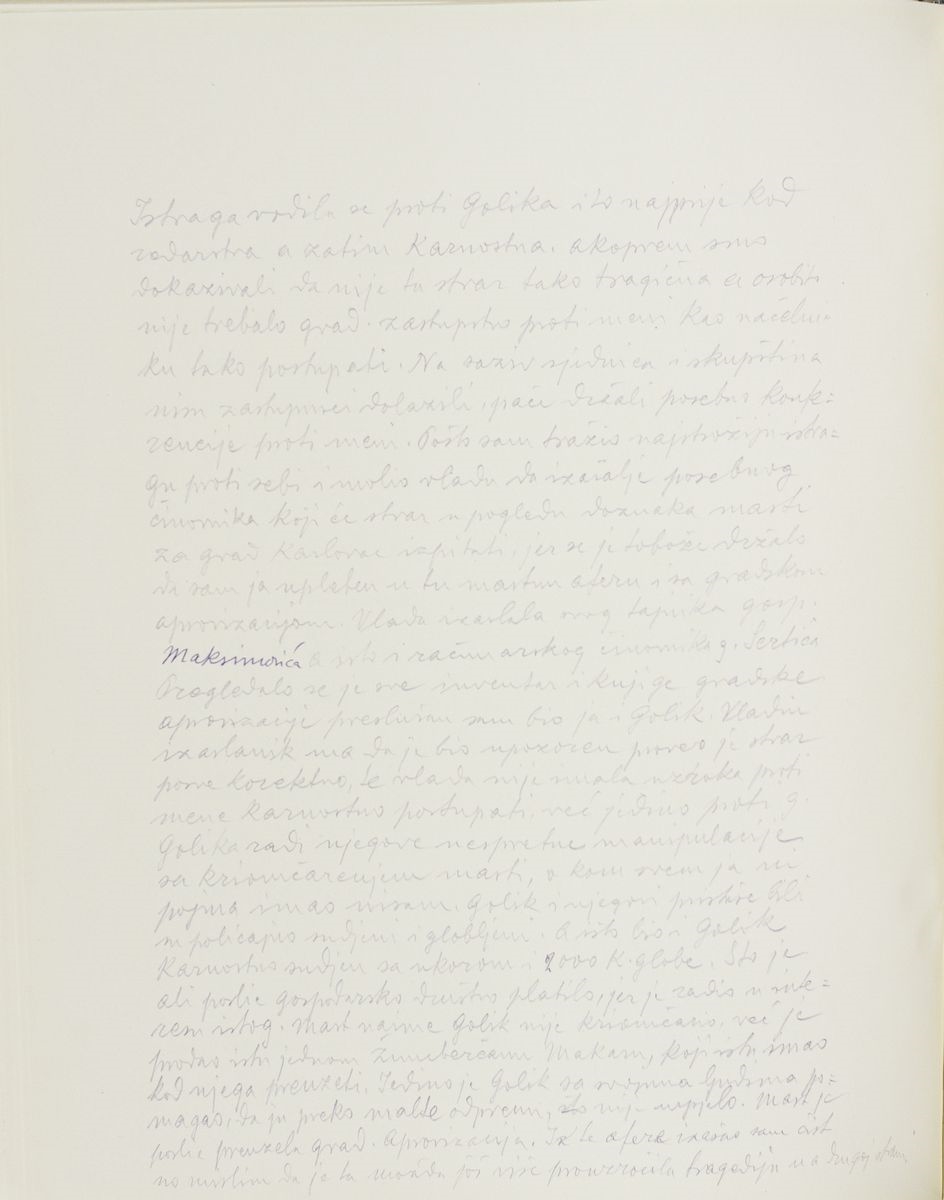 Istraga vodila se proti Golika i to najprije kod
redarstva a zatim Karnostna. akoprem smo
dokazivali da nije ta stvar tako tragična a osobito
nije trebalo grad. zastupstvo proti meni kao načelni-
ku tako postupati. Na saziv sjednica i skupština
nisu zastupnici dolazili, pače držali posebno konfe-
rencije proti meni. Pošto sam tražio najstrožiju istra=
gu proti sebi i molio vladu da izašalje posebnog
činovnika koji će stvar u pogledu doznaka masti
za grad Karlovac izpitati, jer se je tobože držalo
da sam ja upleten u tu masnu aferu i sa gradskom
aprovizacijom. Vlada izaslala svog tajnika gosp.
Maksimovića a isto i računarskog činovnika g. Sertića
Pregledalo se je sve inventar i knjige gradske
aprovizacije preslušan sam bio ja i Golik. Vladin
izaslanik ma da je bio upozoren proveo je stvar
posve korektno, te vlada nije imala uzroka proti
mene karnostno postupati, već jedino proti g.
Golika radi njegove nespretne manipulacije
sa kriomčarenjem masti, o kom svem ja ni
pojma imao nisam. Golik i njegovi bili
su policajno sudjeni i globljeni. A isto bio i Golik
Karnostno sudjen sa ukorom i 2000 K. globe. Što je
ali poslie gospodarsko družtvo platilo, jer je radio u inte=
resu istog. Mast naime Golik nije kriomčario, već je
prodao istu jednom Žumberčanu Makaru, koji istu imao
kod njega preuzeti. Jedino je Golik sa svojima ljudima po=
magao, da ju preko malte odpremi, što nije uspjelo. Mast je
poslie preuzela grad. Aprovizacija. Iz te afere izašao sam čist
no mislim da je ta možda još više prouzročila tragediju na drugoj strani